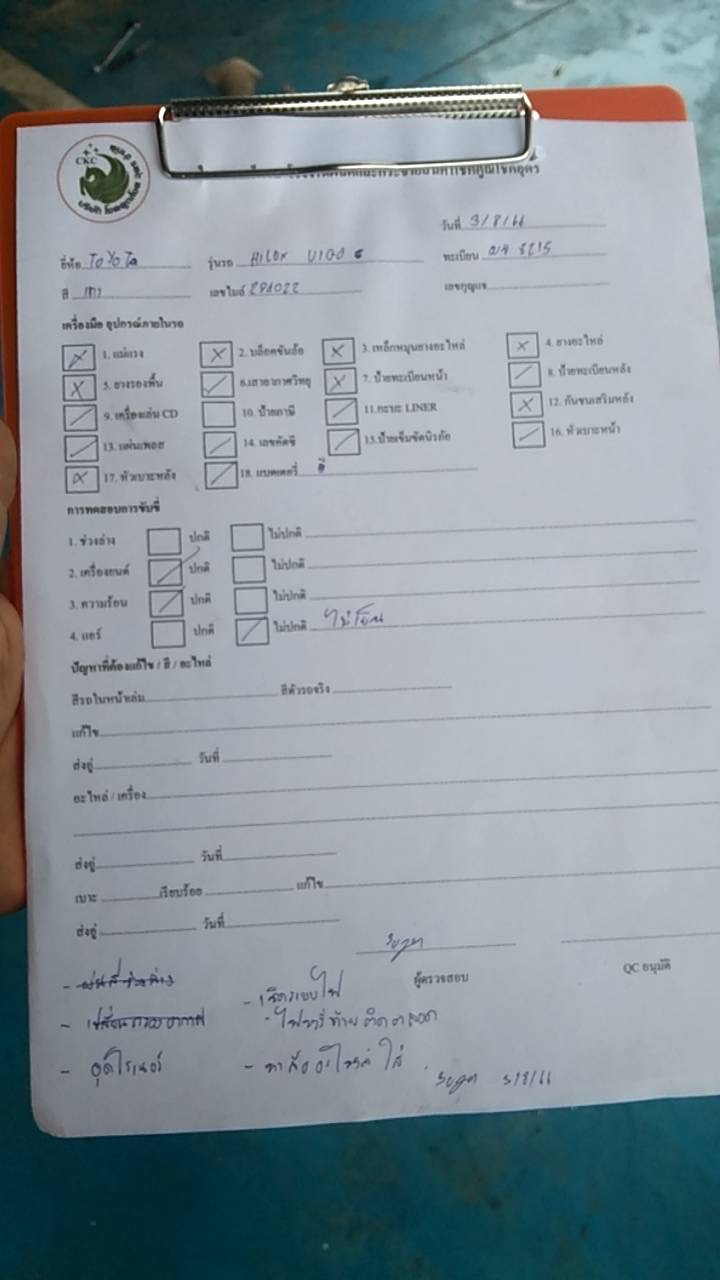 CKC
วันที่ 3/8/66
ยี่ห้อ TOYOTA รุ่นรถ HILUX VIGO ทะเบียน
สี เทา เลขไมล์ 291022 เลขกุญแจ
เครื่องมือ อุปกรณ์ภายในรถ
1. แม่แรง 2. บล็อคขันล้อ 3. เหล็กหมุนยางอะไหล่ 4. ยางอะไหล่
5. ยางรองพื้น 6.เสาอากาศวิทยุ 7. ป้ายทะเบียนหน้า 8. ป้ายทะเบียนหลัง
9. เครื่องเล่น CD 10. ป้ายภาษี 11.กระบะ LINER 12. กันชนเสริมหลัง
13. แผ่นเพลท 14. เลขคัสซี 15.ป้ายเข็มขัดนิรภัย 16. หัวเบาะหน้า
17. หัวเบาะหลัง 18. แบตเตอรี่
การทดสอบการขับขี่
1. ช่วงล่าง ปกติ ไม่ปกติ
2. เครื่องยนต์ ปกติ ไม่ปกติ
3. ความร้อน ปกติ ไม่ปกติ
4. แอร์ ปกติ ไม่ปกติ
ปัญหาที่ต้องแก้ไข / สี / อะไหล่
สีรถในหน้าเล่ม สีตัวรถจริง
แก้ไข
ส่งอู่ วันที่
อะไหล่ / เครื่อง
ส่งอู่ วันที่
เบาะ เรียบร้อย แก้ไข
ส่งอู่ วันที่
ผู้ตรวจสอบ QC อนุมัติ
- เช็คระบบไฟ
3/8/66